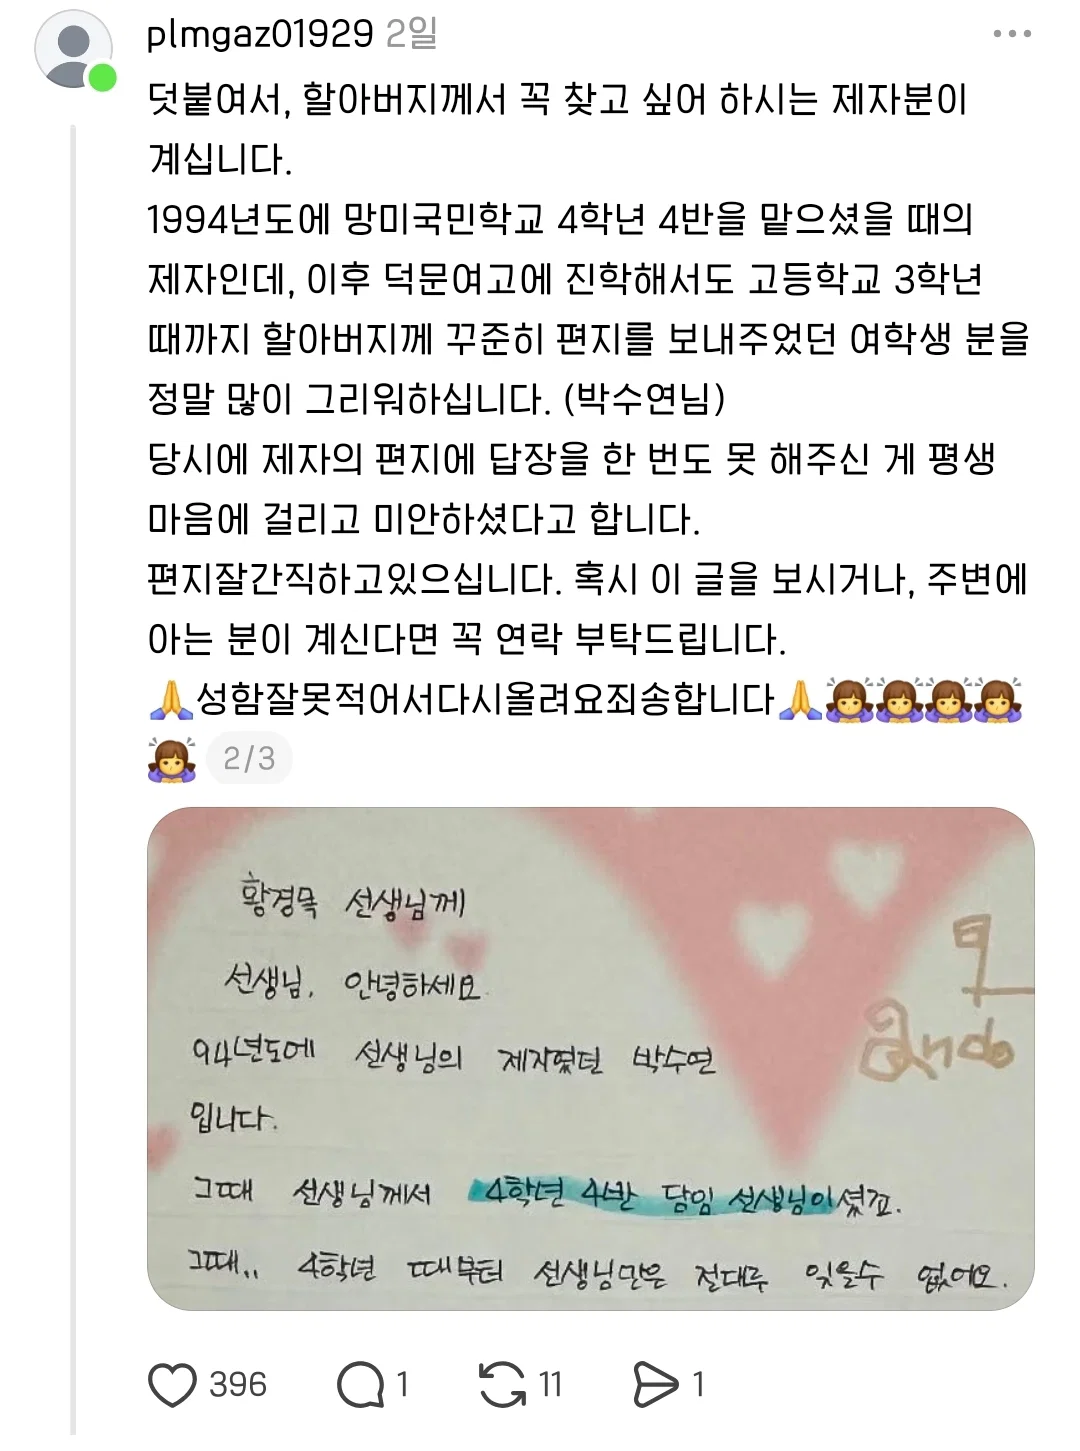 plmgaz01929 2일
덧붙여서, 할아버지께서 꼭 찾고 싶어 하시는 제자분이
계십니다.
1994년도에 망미국민학교 4학년 4반을 맡으셨을 때의
제자인데, 이후 덕문여고에 진학해서도 고등학교 3학년
때까지 할아버지께 꾸준히 편지를 보내주었던 여학생 분을
정말 많이 그리워하십니다. (박수연님)
당시에 제자의 편지에 답장을 한 번도 못 해주신 게 평생
마음에 걸리고 미안하셨다고 합니다.
편지잘간직하고있으십니다. 혹시 이 글을 보시거나, 주변에
아는 분이 계신다면 꼭 연락 부탁드립니다.
🙏성함잘못적어서다시올려요죄송합니다🙏🙇‍♀️🙇‍♀️🙇‍♀️🙇‍♀️
🙇‍♀️ 2/3
황경묵 선생님께
선생님, 안녕하세요.
94년도에 선생님의 제자였던 박수연
입니다.
그때 선생님께서 4학년 4반 담임 선생님이셨죠.
그때.. 4학년 때부터 선생님만은 절대루 잊을수 없어요.
396 1 11 1